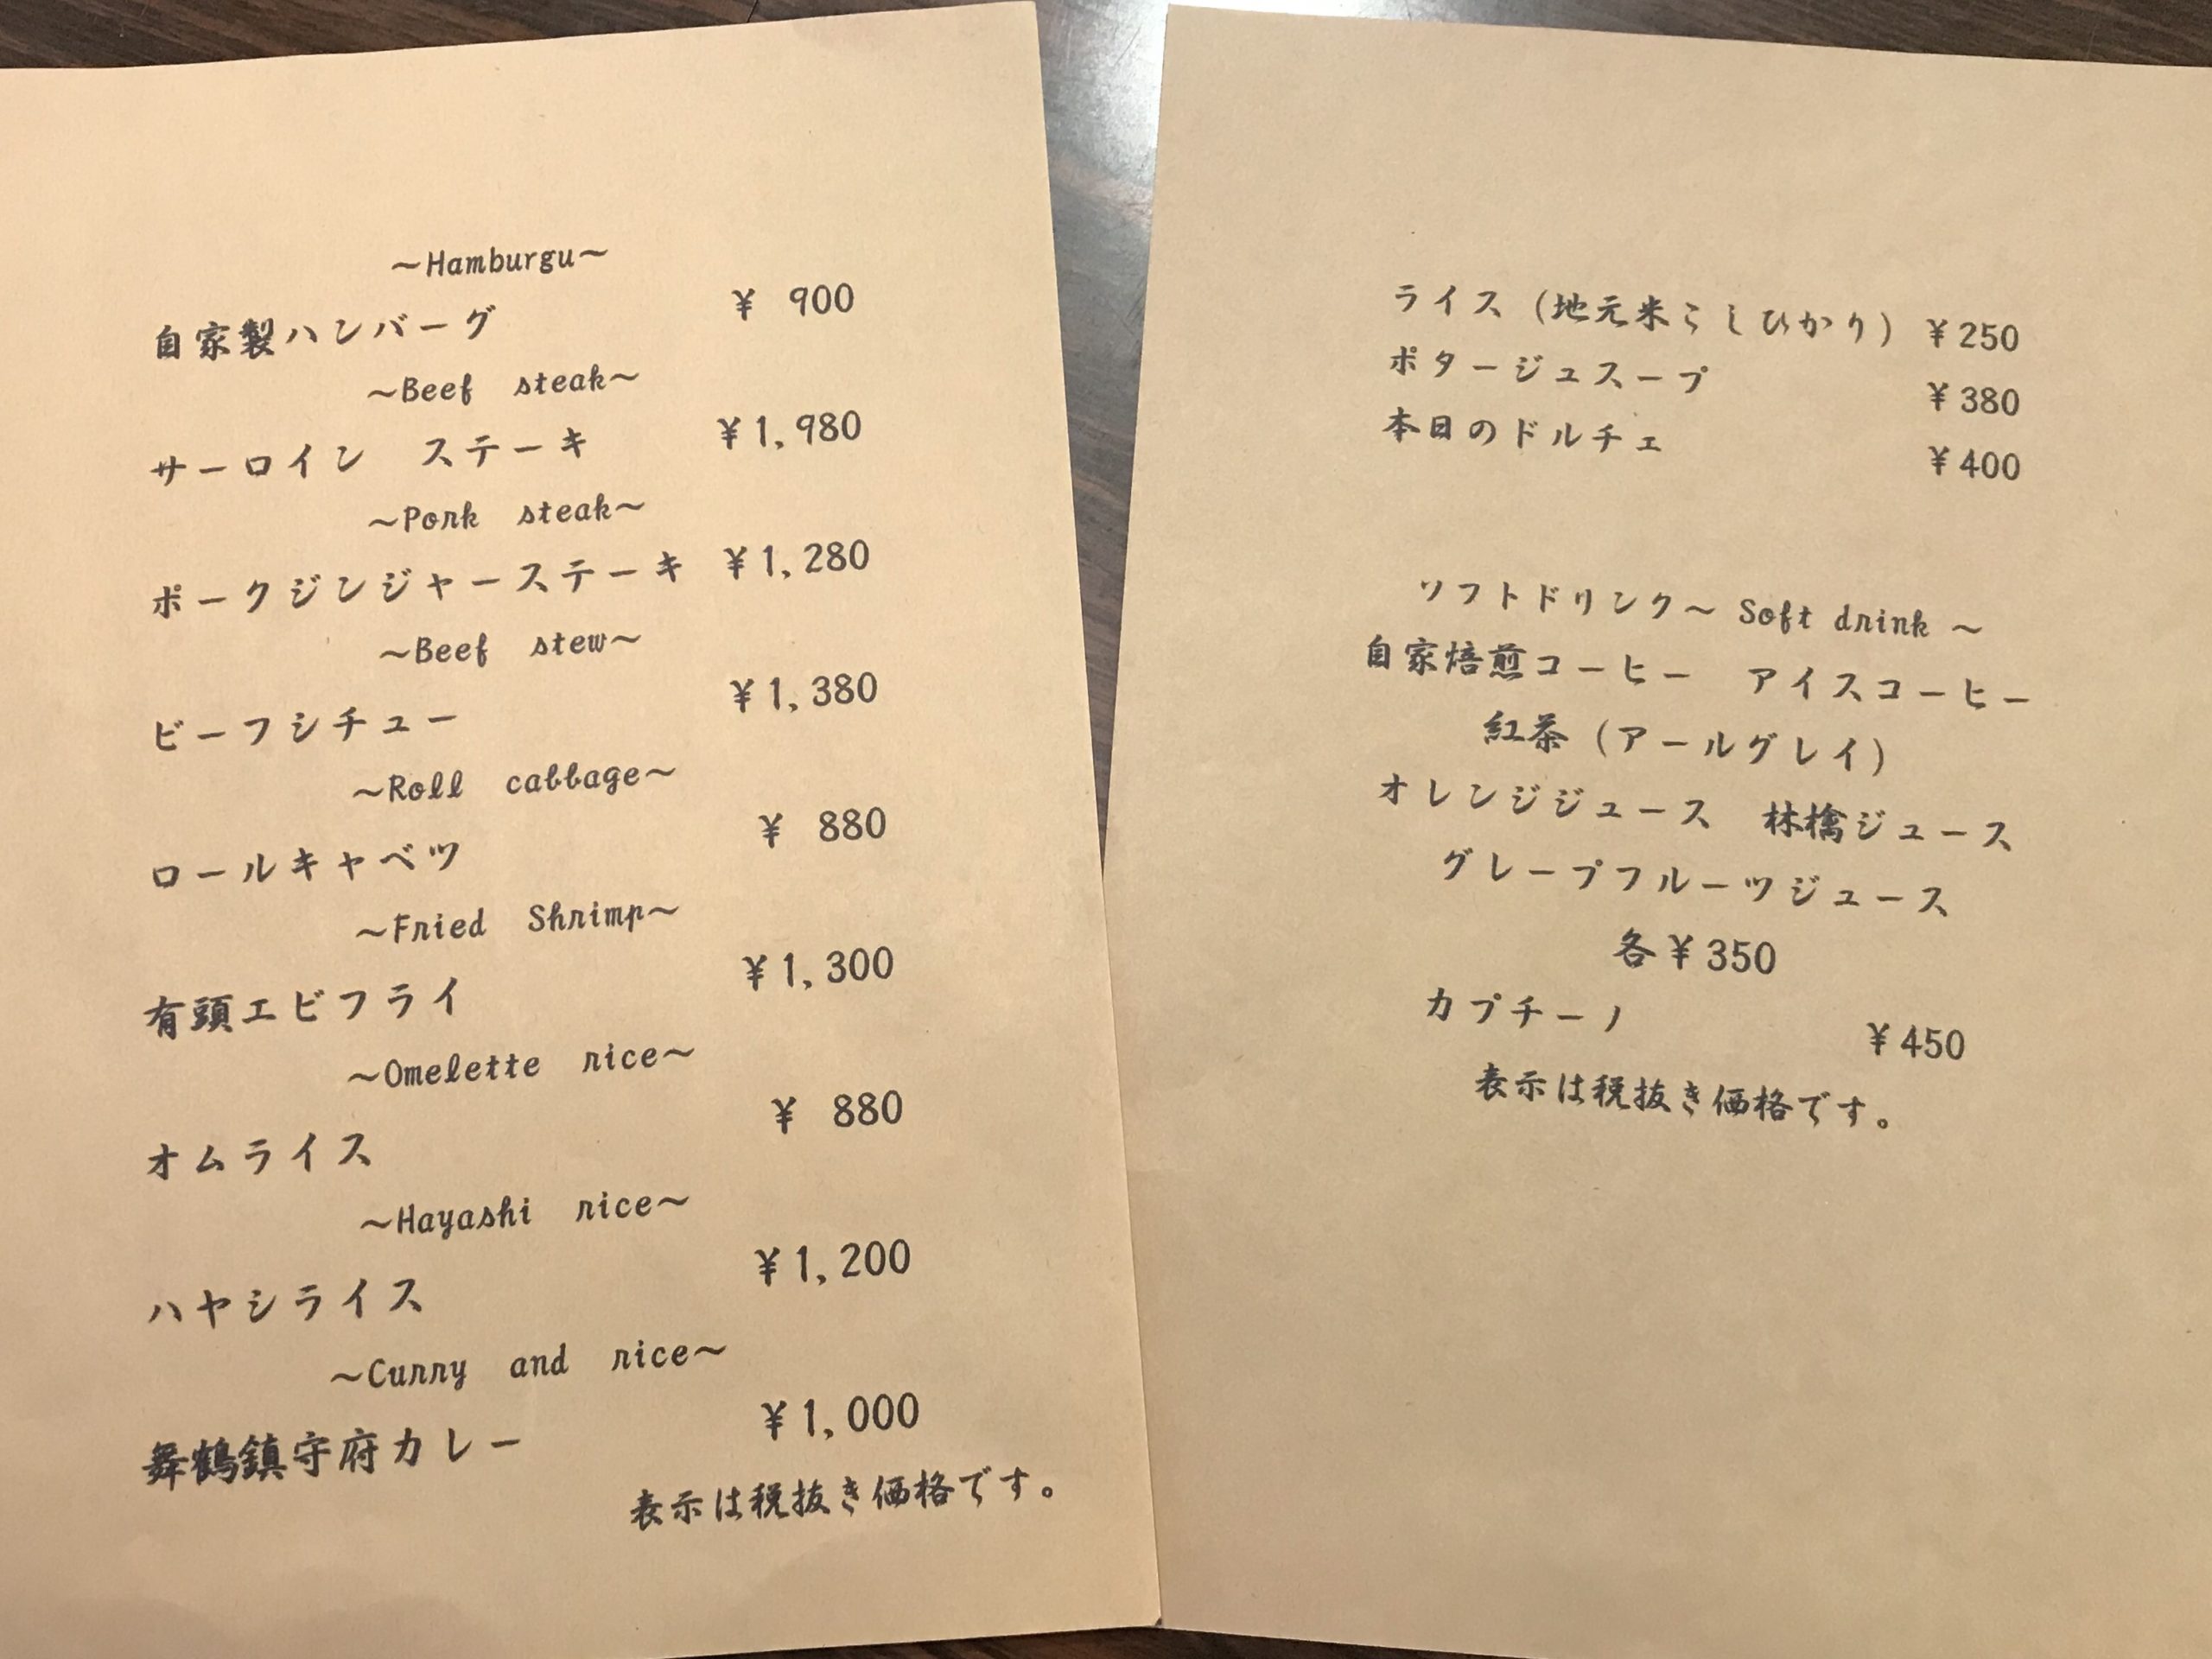 ～Hamburgu～
自家製ハンバーグ ¥ 900
～Beef steak～
サーロイン ステーキ ¥1,980
～Pork steak～
ポークジンジャーステーキ ¥1,280
～Beef stew～
ビーフシチュー ¥1,380
～Roll cabbage～
ロールキャベツ ¥ 880
～Fried Shrimp～
有頭エビフライ ¥1,300
～Omelette rice～
オムライス ¥ 880
～Hayashi rice～
ハヤシライス ¥1,200
～Curry and rice～
舞鶴鎮守府カレー ¥1,000
表示は税抜き価格です。
ライス（地元米こしひかり） ¥250
ポタージュスープ ¥380
本日のドルチェ ¥400
ソフトドリンク～ Soft drink ～
自家焙煎コーヒー アイスコーヒー
紅茶（アールグレイ）
オレンジジュース 林檎ジュース
グレープフルーツジュース
各¥350
カプチーノ ¥450
表示は税抜き価格です。